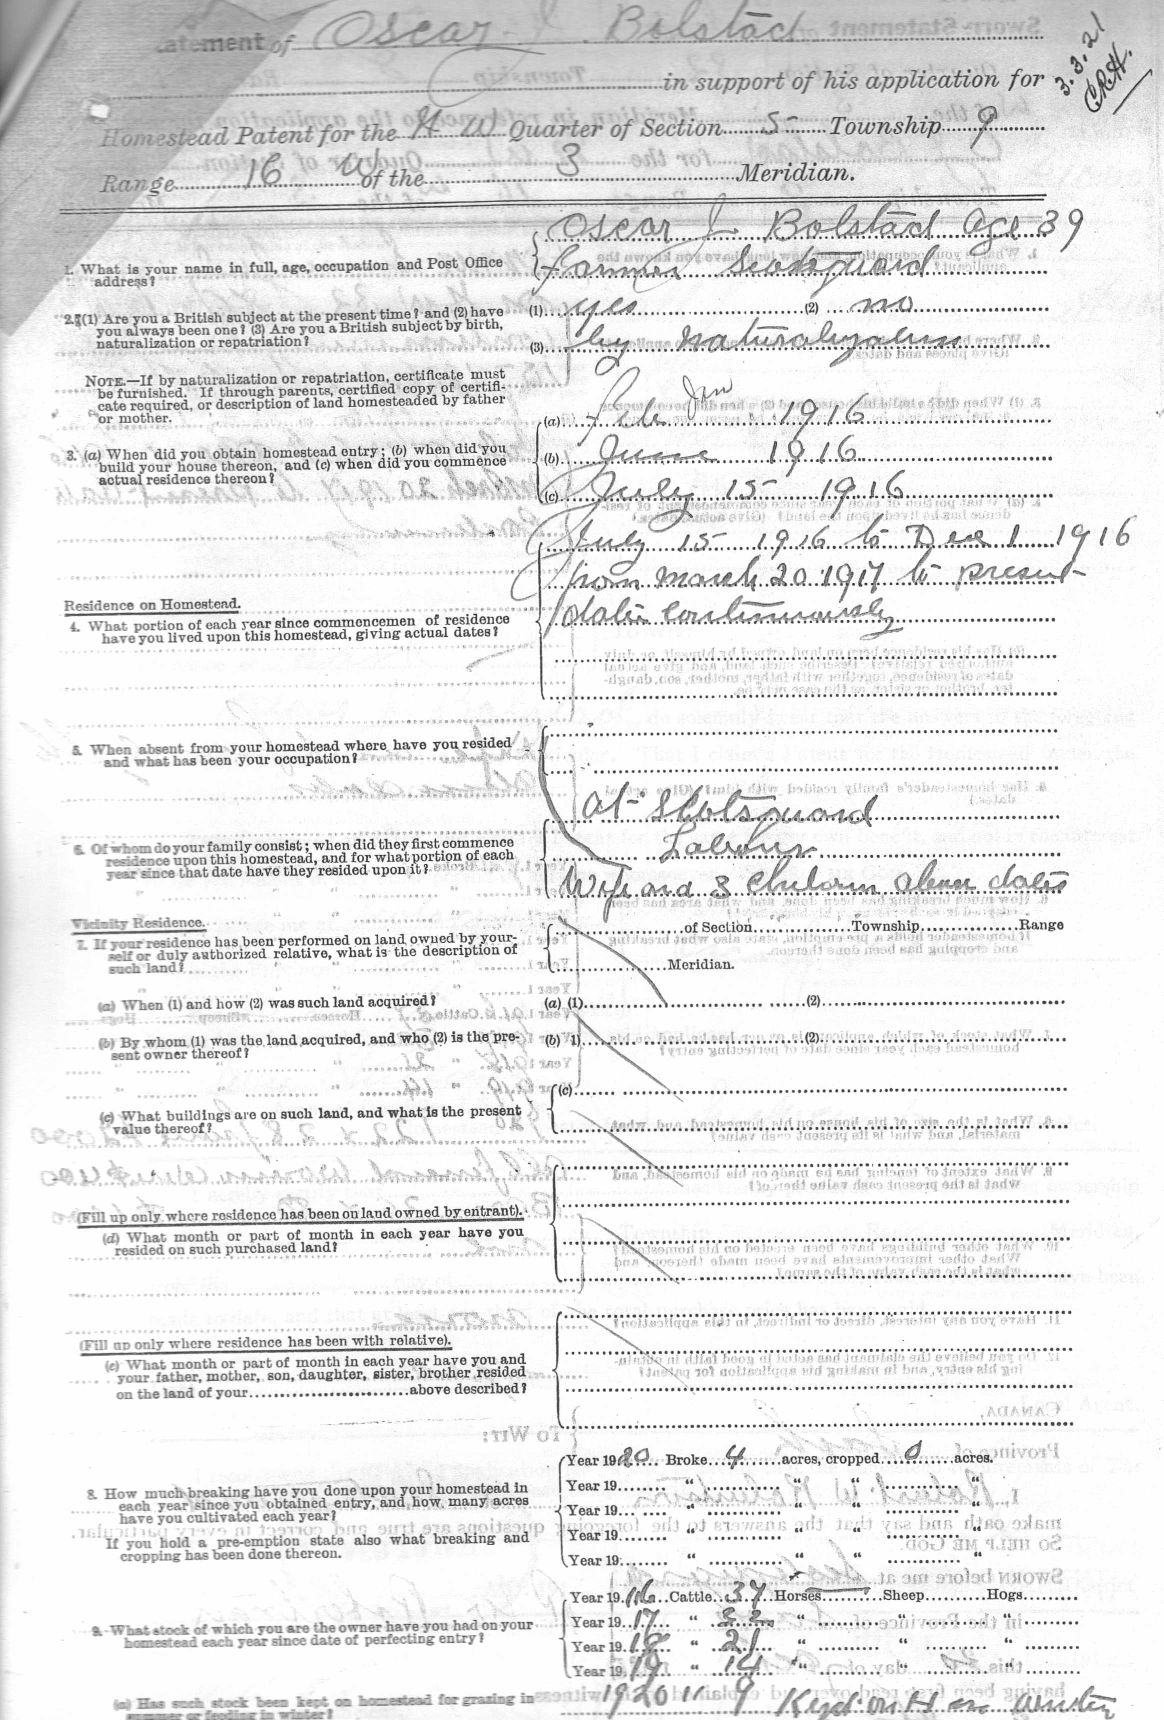 atement of Oscar J. Bolstad
in support of his application for
3.3.21
Homestead Patent for the N W Quarter of Section 5 Township 9
Range 16 W of the 3 Meridian.
Oscar J Bolstad Age 39
1. What is your name in full, age, occupation and Post Office
address?
Farmer Scotsguard
2. (1) Are you a British subject at the present time? and (2) have
you always been one? (3) Are you a British subject by birth,
naturalization or repatriation?
(1) yes (2) no
(3) by Naturalization
NOTE.—If by naturalization or repatriation, certificate must
be furnished. If through parents, certified copy of certifi-
cate required, or description of land homesteaded by father
or mother.
3. (a) When did you obtain homestead entry; (b) when did you
build your house thereon, and (c) when did you commence
actual residence thereon?
(a) Feb Jan 1916
(b) June 1916
(c) July 15 1916
July 15 1916 to Dec 1 1916
from March 20 1917 to present
date continuously
Residence on Homestead.
4. What portion of each year since commencemen of residence
have you lived upon this homestead, giving actual dates?
5. When absent from your homestead where have you resided
and what has been your occupation?
at Scotsguard
Labour
6. Of whom do your family consist; when did they first commence
residence upon this homestead, and for what portion of each
year since that date have they resided upon it?
Wife and 3 children above dates
Vicinity Residence.
7. If your residence has been performed on land owned by your-
self or duly authorized relative, what is the description of
such land?
of Section Township Range
Meridian.
(a) When (1) and how (2) was such land acquired?
(a) (1) (2)
(b) By whom (1) was the land acquired, and who (2) is the pre-
sent owner thereof?
(b) 1) (2)
(c) What buildings are on such land, and what is the present
value thereof?
(c)
(Fill up only where residence has been on land owned by entrant).
(d) What month or part of month in each year have you
resided on such purchased land?
(Fill up only where residence has been with relative).
(e) What month or part of month in each year have you and
your father, mother, son, daughter, sister, brother resided
on the land of your above described?
8. How much breaking have you done upon your homestead in
each year since you obtained entry, and how many acres
have you cultivated each year?
If you hold a pre-emption state also what breaking and
cropping has been done thereon.
Year 1920 Broke 4 acres, cropped 0 acres.
Year 19 " " " "
Year 19 " " " "
Year 19 " " " "
Year 19 " " " "
9. What stock of which you are the owner have you had on your
homestead each year since date of perfecting entry?
Year 1916 Cattle 37 Horses Sheep Hogs
Year 19 17 " " " "
Year 19 18 " 21 " " "
Year 19 19 " 14 " " "
(a) Has such stock been kept on homestead for grazing in
summer or feeding in winter?
1920 11 9 Kept on H in winter